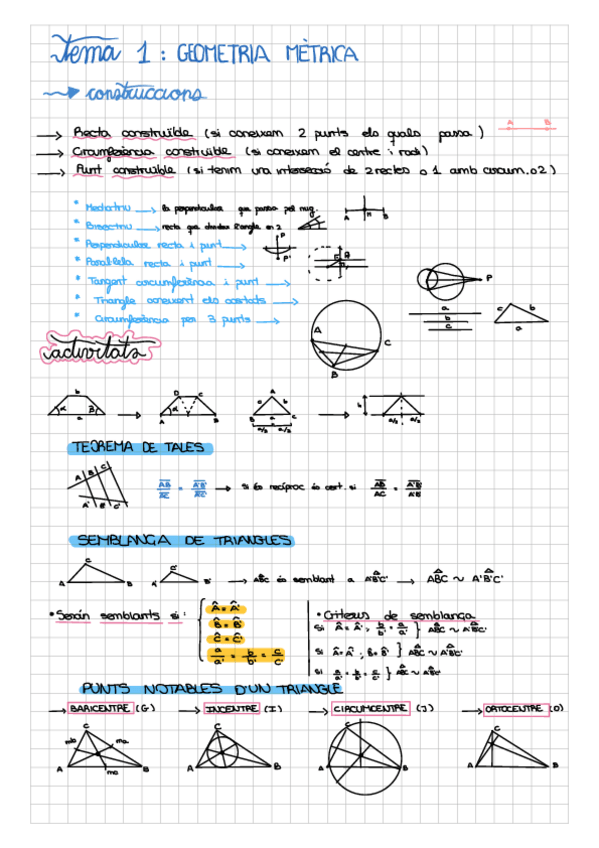 Tema 1: GEOMETRIA MÈTRICA
construccions
A B
→ Recta construïble (si coneixem 2 punts els quals passa)
→ Circumferència construïble (si coneixem el centre i radi)
→ Punt construïble (si tenim una intersecció de 2 rectes o 1 amb circum. o 2)
* Mediatriu → la perpendicular que passa pel mig. A m B
* Bisectriu → recta que divideix l'angle en 2
* Perpendicular recta i punt → P P'
* Paral·lela recta i punt →
* Tangent circumferència i punt → P
* Triangle coneixent els costats → a b c
* Circumferència per 3 punts → A B C
c b a
activitats
b α β a → D C α A B A c b B a C a/2 a/2 → h a/2 a/2
TEOREMA DE TALES
A B C A' B' C'
→ si és recíproc és cert. si
SEMBLANÇA DE TRIANGLES
A C B A' C' B' → ABC és semblant a A'B'C' → ABC ~ A'B'C'
• Seràn semblants si:
Â = Â'
B̂ = B̂'
Ĉ = Ĉ'
a/a' = b/b' = c/c'
• Criteris de semblança
Si Â = Â'; b/b' = a/a' } ABC ~ A'B'C'
Si Â = Â'; B̂ = B̂' } ABC ~ A'B'C'
Si a/a' = b/b' = c/c' } ABC ~ A'B'C'
PUNTS NOTABLES D'UN TRIANGLE
→ BARICENTRE (G) → INCENTRE (I) → CIRCUMCENTRE (J) → ORTOCENTRE (O)
C mb ma A mc B
C A B
C A B
C A B